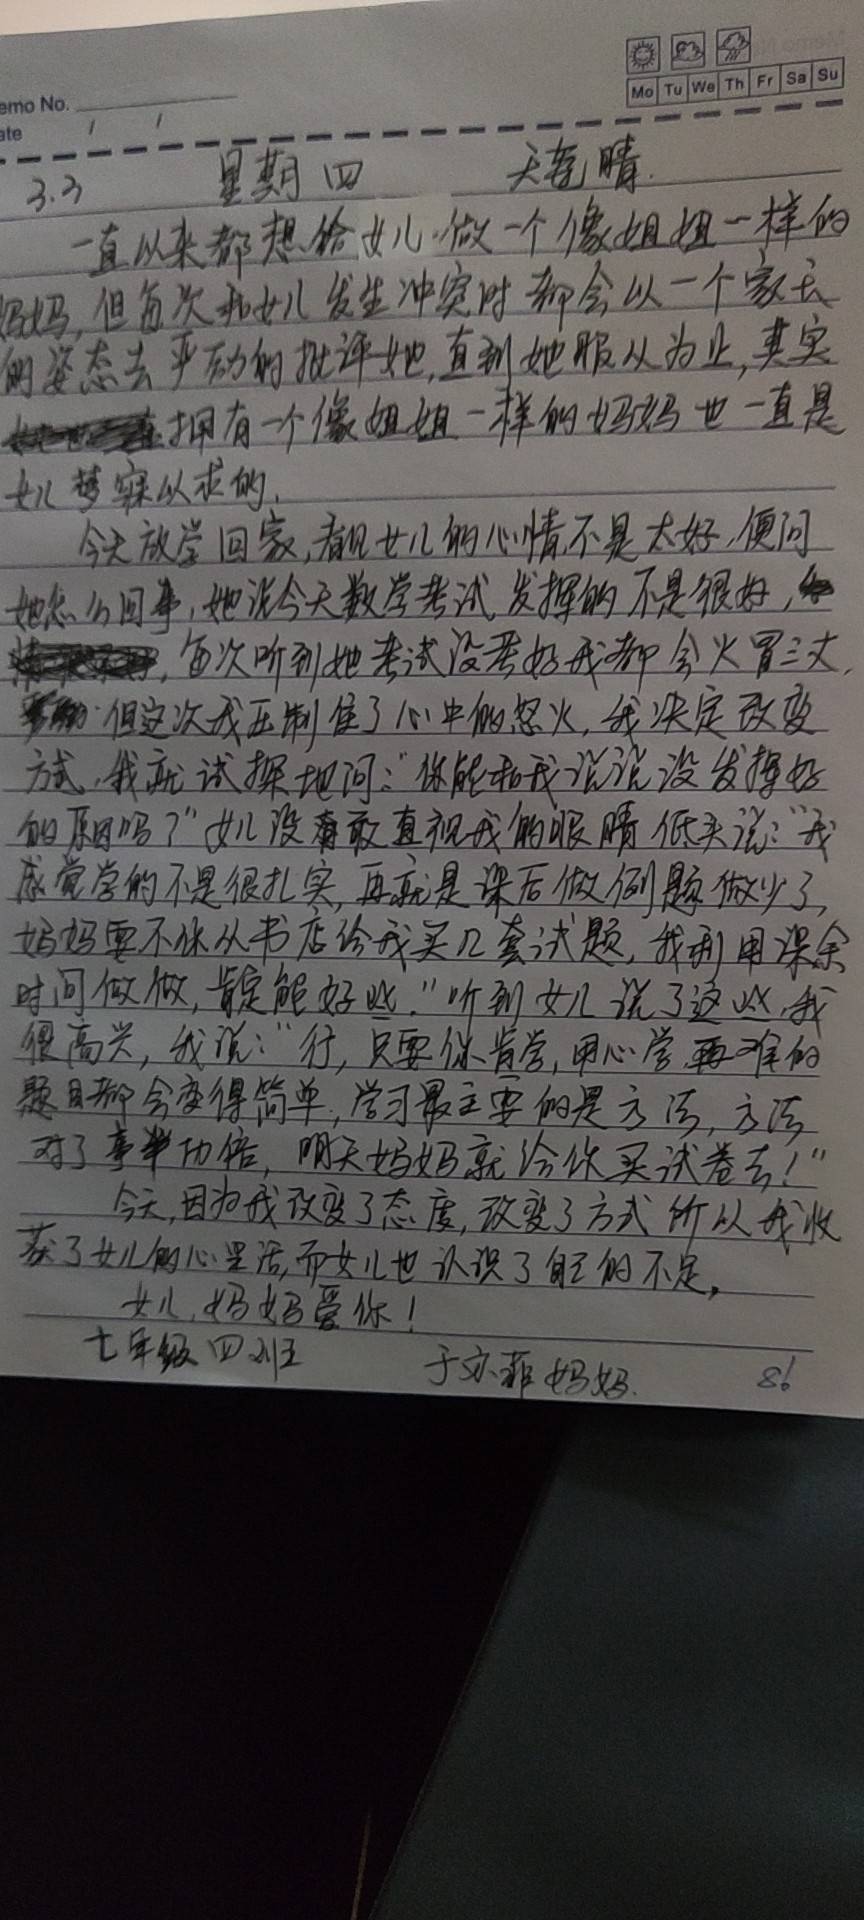 Mo Tu We Th Fr Sa Su
emo No.
ate / /
3.3 星期四 天气晴.
一直以来都想给女儿做一个像姐姐一样的
妈妈,但每次和女儿发生冲突时都会以一个家长
的姿态去严厉的批评她,直到她服从为止,其实
拥有一个像姐姐一样的妈妈也一直是
女儿梦寐以求的.
今天放学回家,看见女儿的心情不是太好,便问
她怎么回事,她说今天数学考试发挥的不是很好,
,每次听到她考试没考好我都会火冒三丈,
但这次我压制住了心中的怒火,我决定改变
方式,我就试探地问:"你能和我说说没发挥好
的原因吗?"女儿没有敢直视我的眼睛低头说:"我
感觉学的不是很扎实,再就是课后做例题做少了,
妈妈要不你从书店给我买几套试题,我利用课余
时间做做,肯定能好些."听到女儿说了这些,我
很高兴,我说:"行,只要你肯学,用心学,再难的
题目都会变得简单,学习最主要的是方法,方法
对了事半功倍,明天妈妈就给你买试卷去!"
今天,因为我改变了态度,改变了方式所以我收
获了女儿的心里话,而女儿也认识了自己的不足,
女儿,妈妈爱你!
七年级四班 于亦菲妈妈. 86